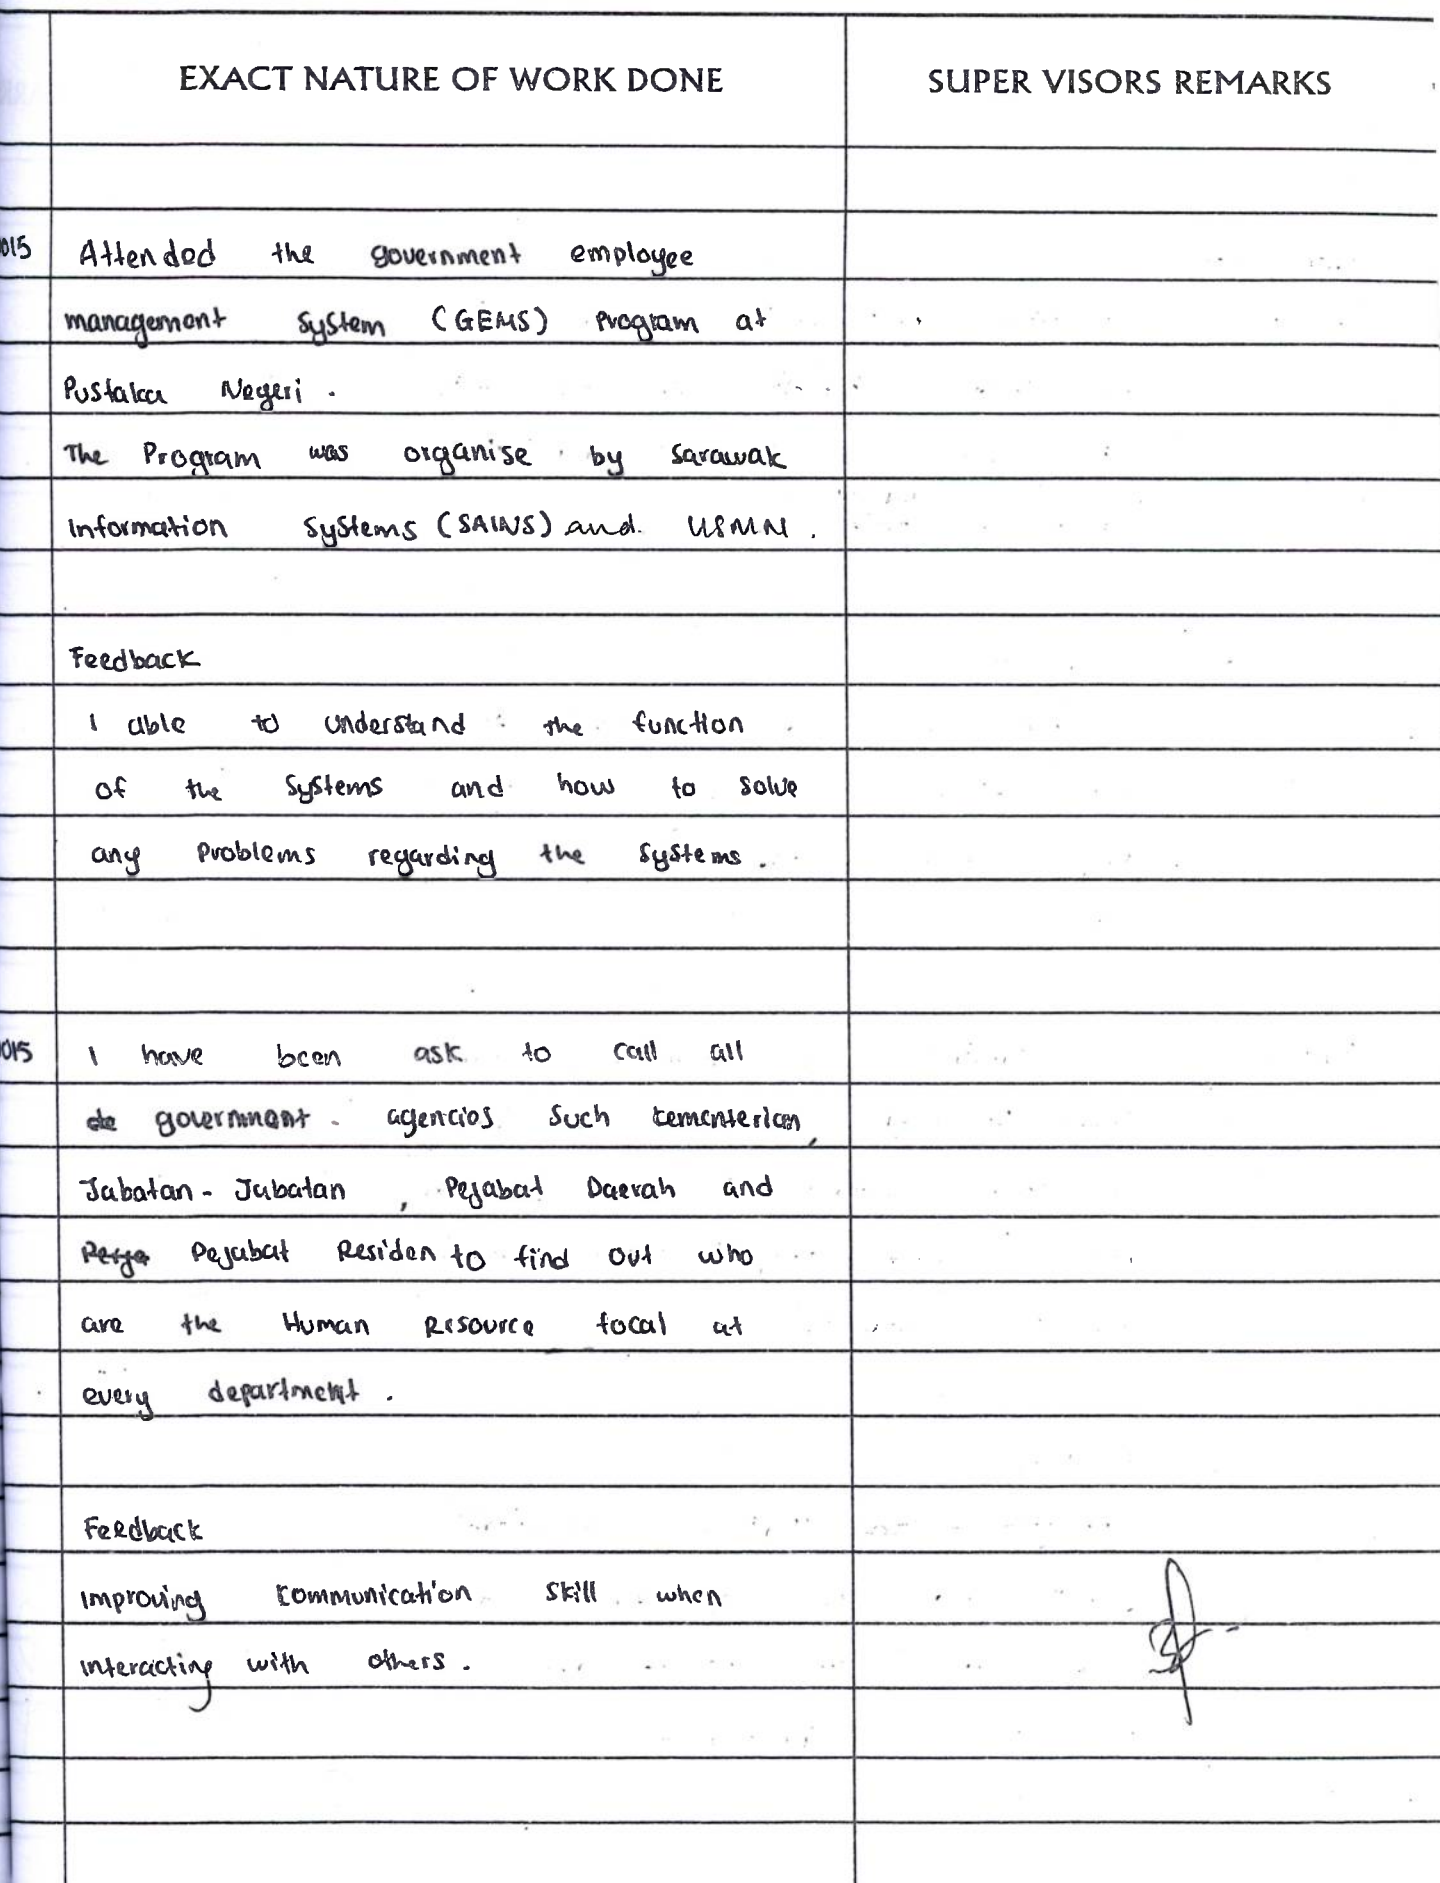 EXACT NATURE OF WORK DONE
SUPER VISORS REMARKS
015 Attended the government employee
management System (GEMS) Program at
Pustaka Negeri.
The Program was organise by Sarawak
Information Systems (SAINS) and USMN.
Feedback
I able to understand the function
of the Systems and how to solve
any Problems regarding the Systems.
015 I have been ask to call all
de government agencies such kementerian,
Jabatan-Jabatan, Pejabat Daerah and
Pejabat Residen to find out who
are the Human Resource focal at
every department.
Feedback
Improving communication skill when
interacting with others.